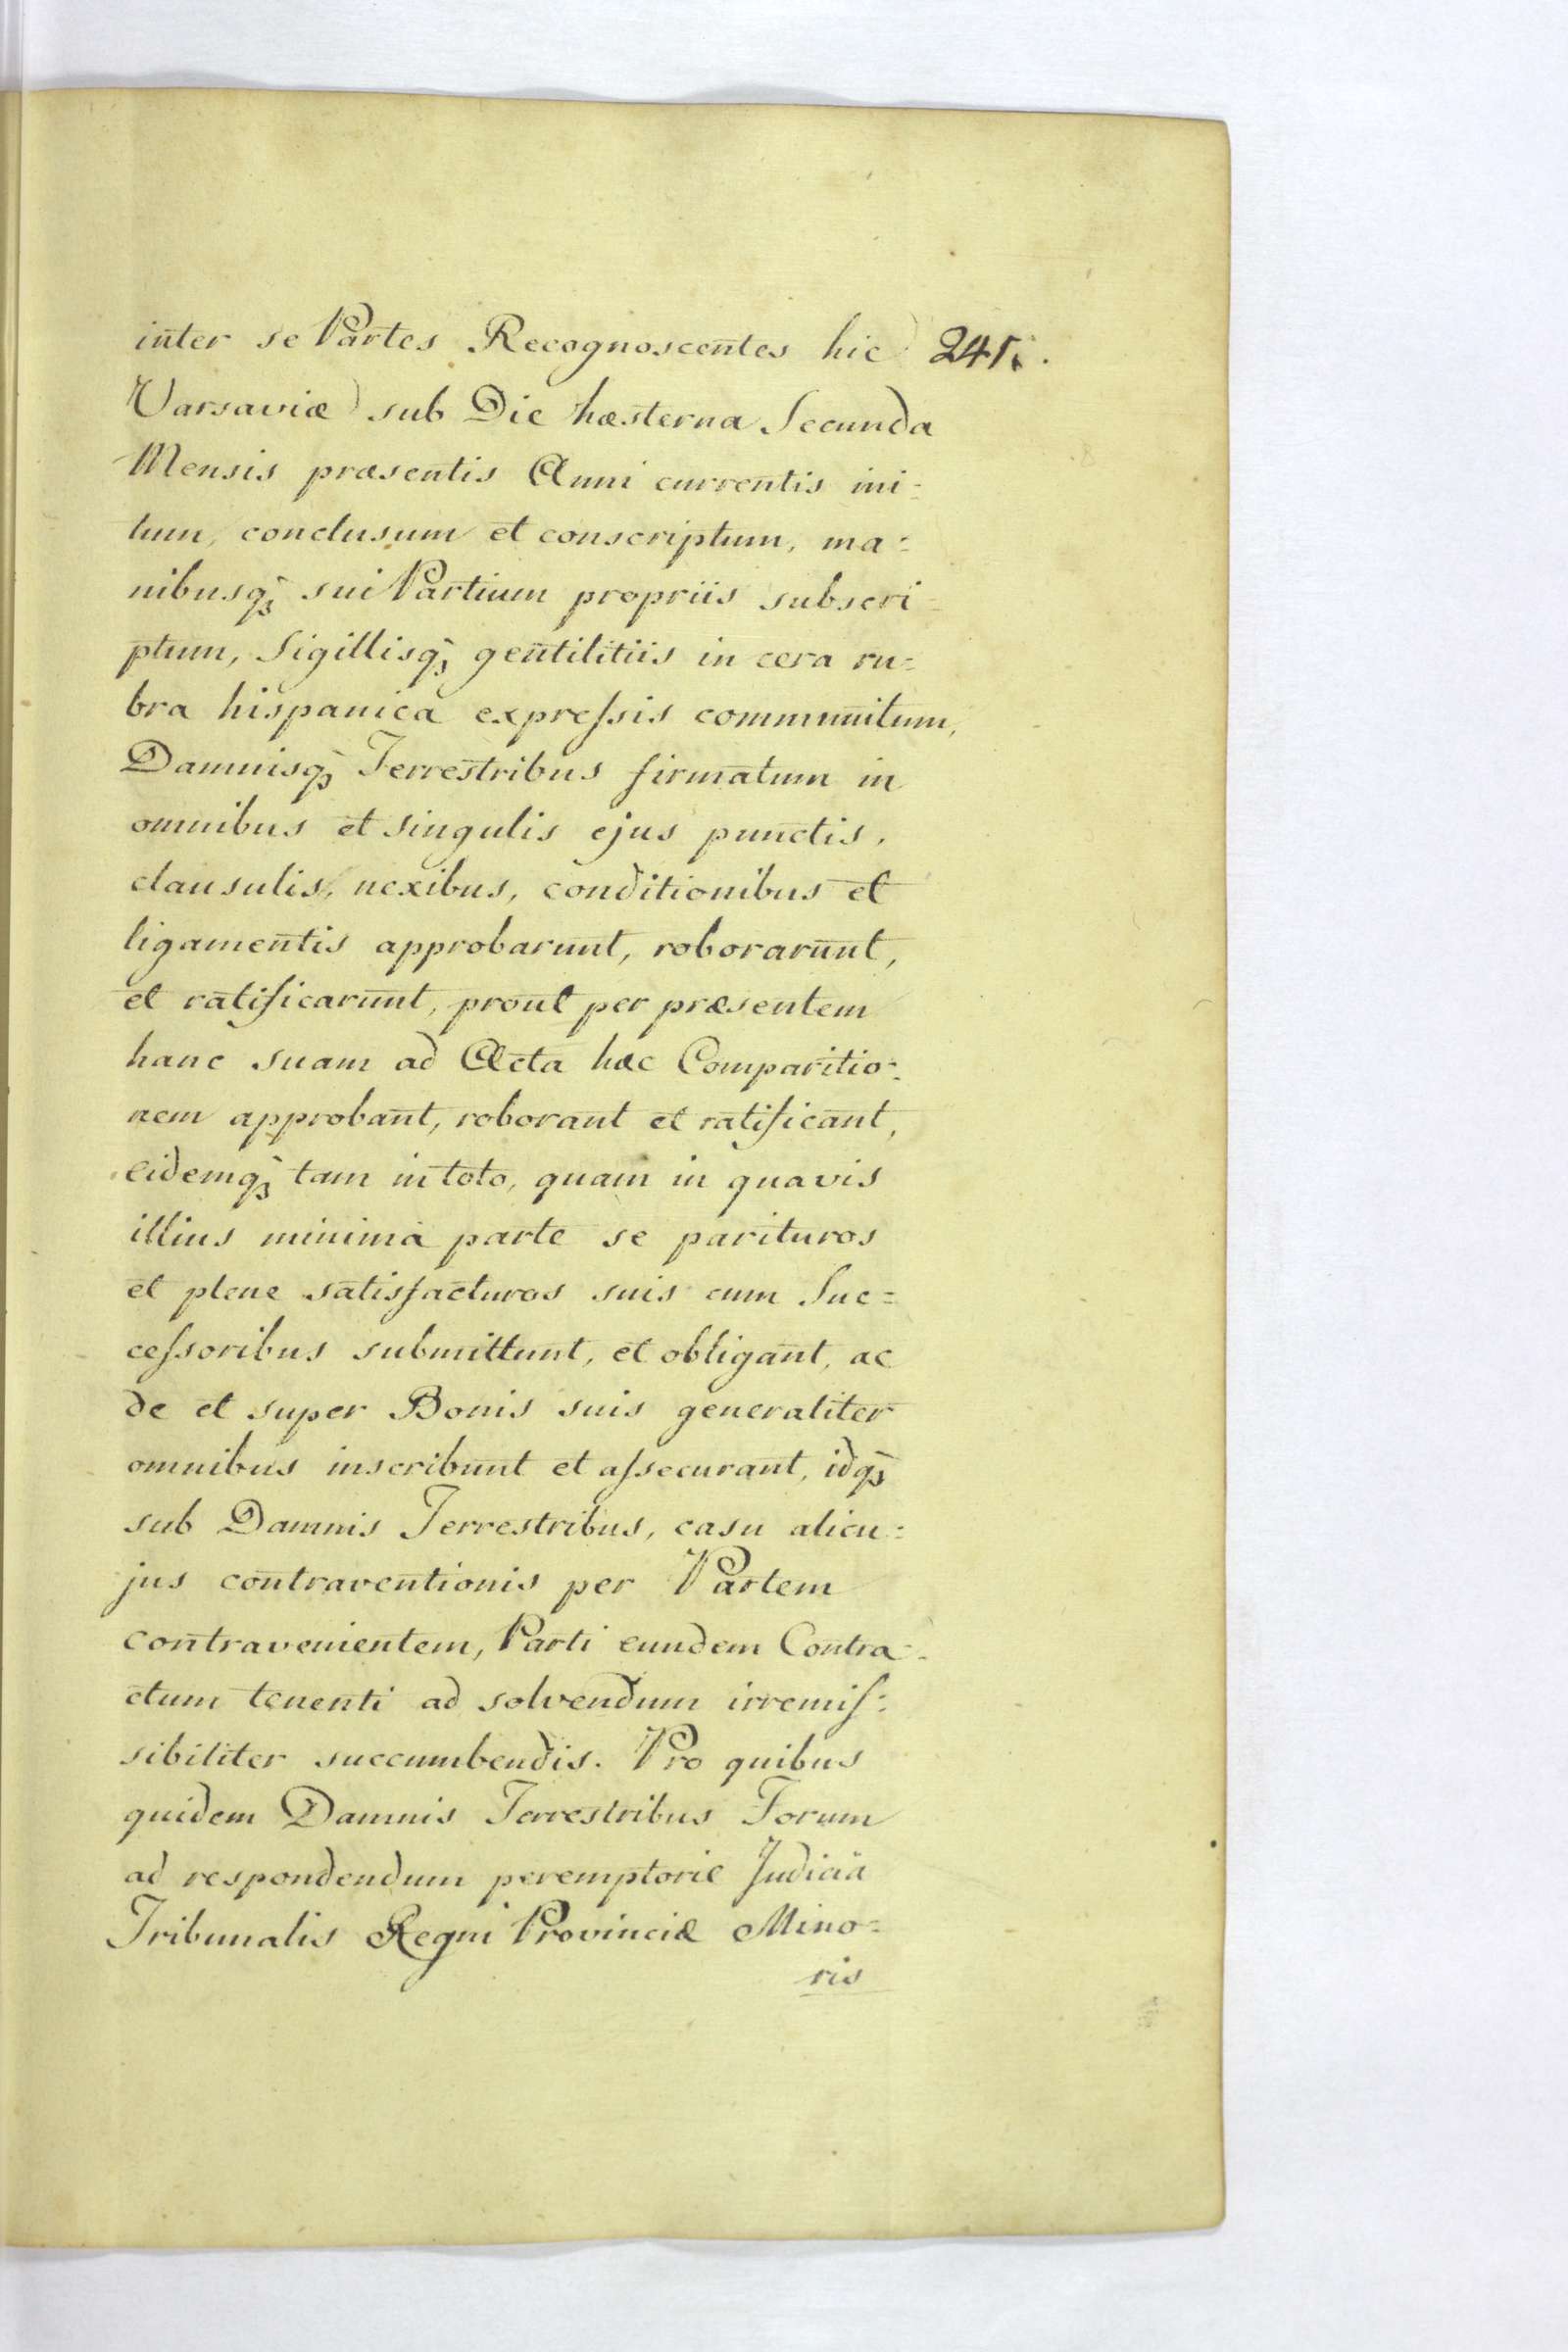 inter se Partes Recognoscentes hic 241.
Varsaviæ sub Die hæsterna Secunda
Mensis præsentis Anni currentis ini=
tum, conclusum et conscriptum, ma=
nibusq3 sui Partium propriis subscri=
ptum, Sigillisq3 gentilitiis in cera ru=
bra hispanica expreſsis communitum,
Damnisq3 Terrestribus firmatum in
omnibus et singulis ejus punctis,
clausulis, nexibus, conditionibus et
ligamentis approbarunt, roborarunt,
et ratificarunt, prout per præsentem
hanc suam ad Acta hæc Comparitio=
nem approbant, roborant et ratificant,
eidemq3 tam in toto, quam in quavis
illius minima parte se parituros
et plene satisfacturos suis cum Suc=
ceſsoribus submittunt, et obligant, ac
de et super Bonis suis generaliter
omnibus inscribunt et aſsecurant, idq3
sub Damnis Terrestribus, casu alicu=
jus contraventionis per Partem
contravenientem, Parti eundem Contra=
ctum tenenti ad solvendum irremiſ=
sibiliter succumbendis. Pro quibus
quidem Damnis Terrestribus Forum
ad respondendum peremptorie Judicia
Tribunalis Regni Provinciæ Mino=
ris